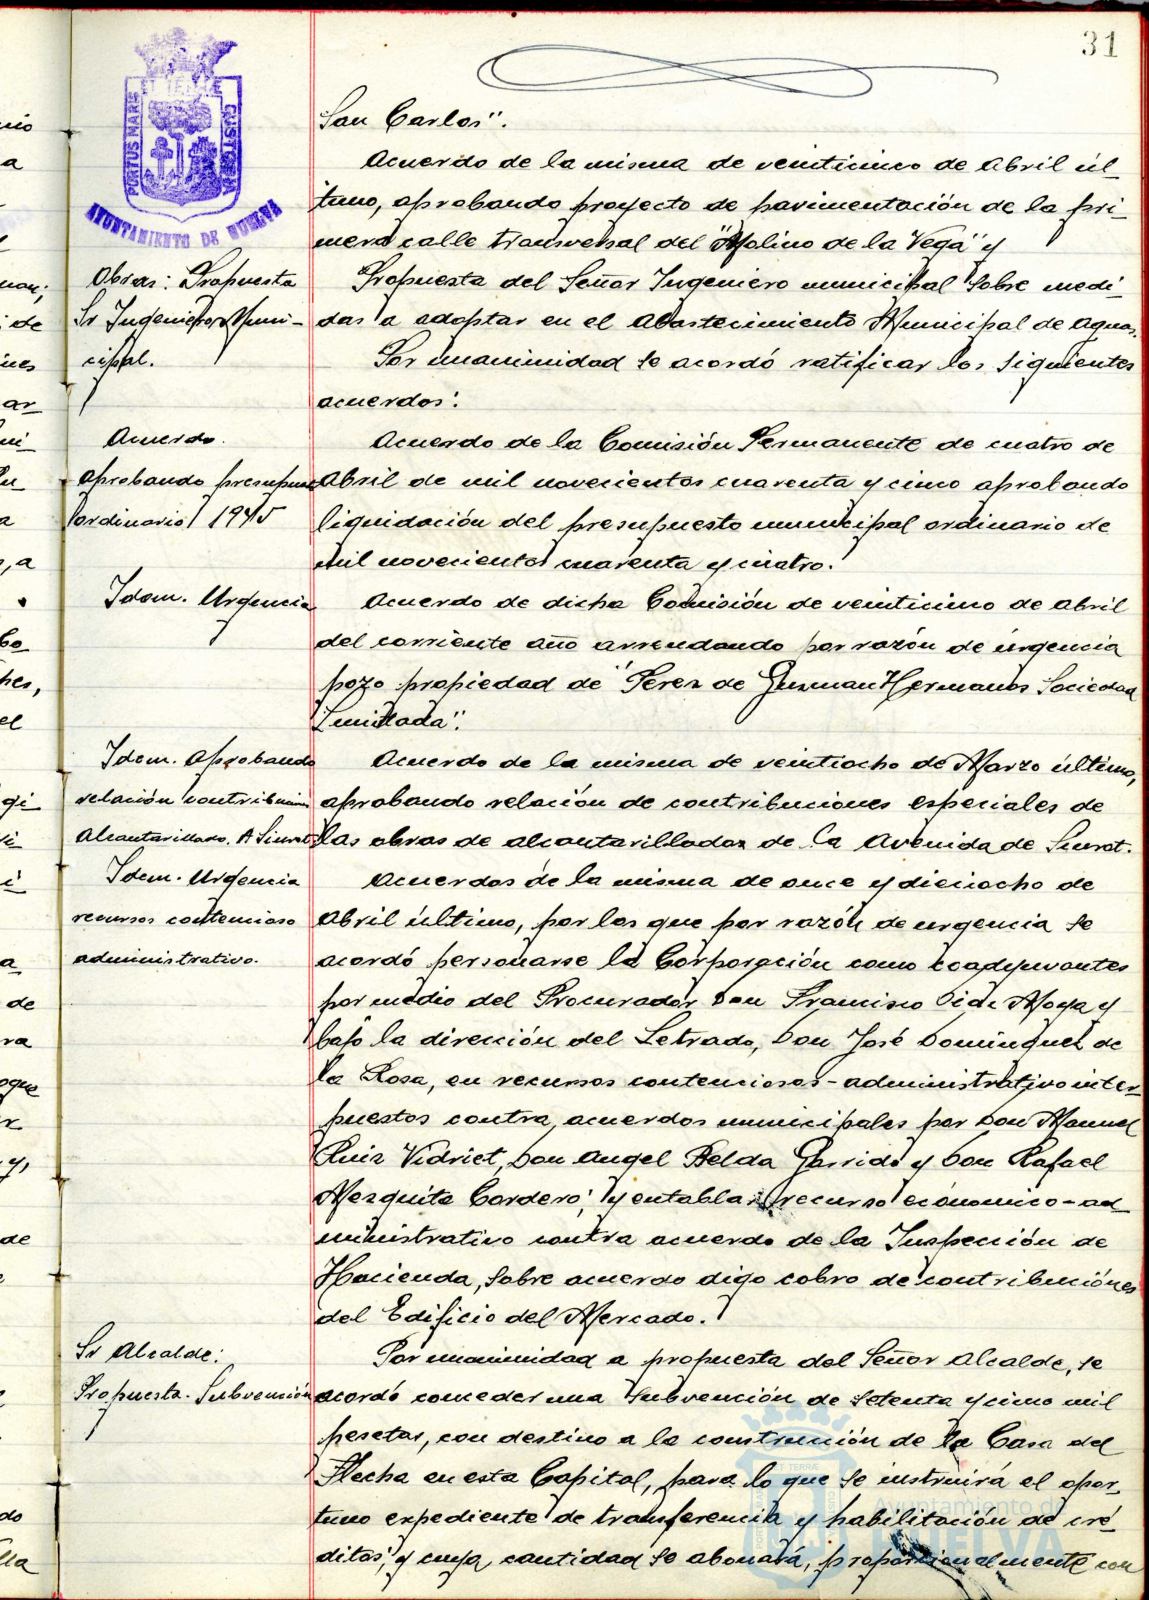 31
PORTUS MARIS ET TERRAE CUSTODIA
AYUNTAMIENTO DE HUELVA
San Carlos".
Acuerdo de la misma de veinticinco de Abril úl-
timo, aprobando proyecto de pavimentación de la pri-
mera calle transversal del "Molino de la Vega" y
Obras: Propuesta
Sr Ingeniero Muni-
cipal.
Propuesta del Señor Ingeniero municipal sobre medi-
das a adoptar en el Abastecimiento Municipal de Aguas.
Por unanimidad se acordó ratificar los siguientes
acuerdos:
Acuerdo.
aprobando presupues
ordinario 1945
Acuerdo de la Comisión Permanente de cuatro de
Abril de mil novecientos cuarenta y cinco aprobando
liquidación del presupuesto municipal ordinario de
mil novecientos cuarenta y cuatro.
Idem. Urgencia
Acuerdo de dicha Comisión de veinticinco de Abril
del corriente año arrendando por razón de urgencia
pozo propiedad de "Perez de Guzman Hermanos Sociedad
Limitada".
Idem. Aprobando
relación contribucion
Alcantarillado. A Siurot
Acuerdo de la misma de veintiocho de Marzo último,
aprobando relación de contribuciones especiales de
las obras de alcantarillado de la Avenida de Siurot.
Idem. Urgencia
recursos contencioso
administrativo.
Acuerdos de la misma de once y dieciocho de
Abril último, por los que por razón de urgencia se
acordó personarse la Corporación como coadyuvantes
por medio del Procurador Don Francisco Moya y
bajo la dirección del Letrado, Don José Dominguez de
la Rosa, en recursos contenciosos-administrativo inter-
puestos contra acuerdos municipales por Don Manuel
Ruiz Don Angel Belda Garrido y Don Rafael
Mezquita Cordero; y entablar recurso económico-ad
ministrativo contra acuerdo de la Inspección de
Hacienda, sobre acuerdo digo cobro de contribuciónes
del Edificio del Mercado.
Sr Alcalde:
Propuesta. Subvención
Por unanimidad a propuesta del Señor Alcalde, se
acordó conceder una subvención de setenta y cinco mil
pesetas, con destino a la construcción de la Casa del
Flecha en esta Capital, para lo que se instruirá el opor-
tuno expediente de transferencia y habilitación de cré-
ditos, y cuya cantidad se abonará, proporcionalmente con
Ayuntamiento de
HUELVA